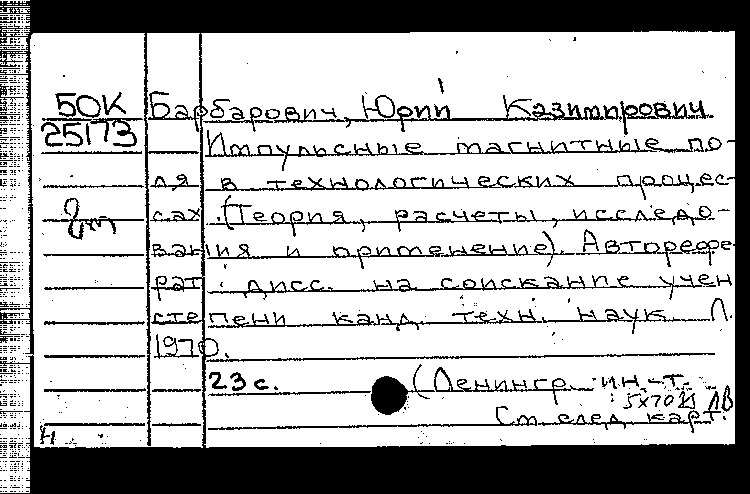 50К Барбарович, Юрий Казимирович
25173 Импульсные магнитные по-
ля в технологических процес-
сах. (Теория, расчеты, исследо-
вания и применение). Авторефе-
рат дисс. на соискание учен
степени канд. техн. наук. Л.
1970.
23 с. (Ленингр. ин-т.
См. след. карт.
Н